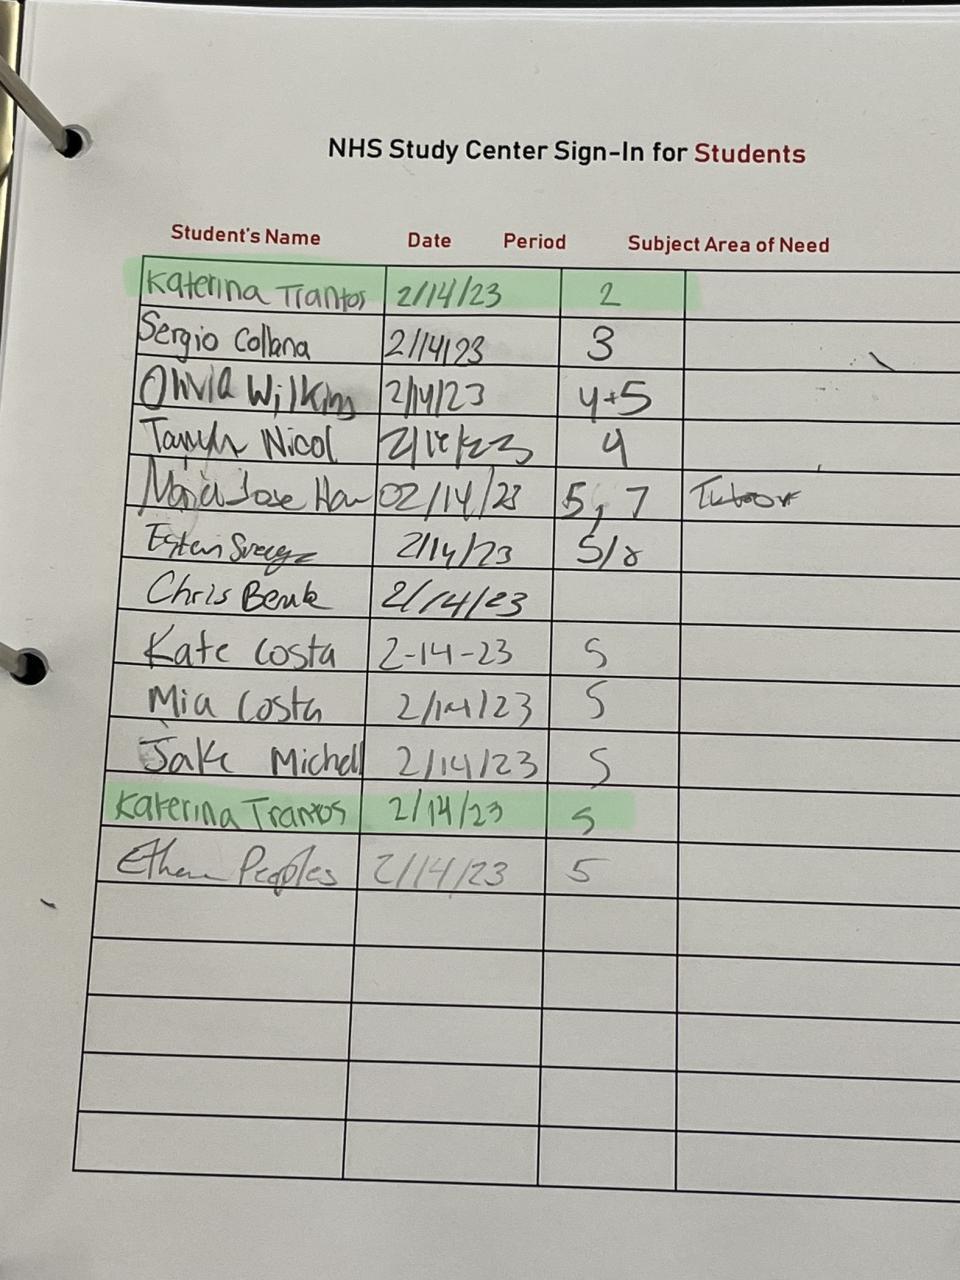 NHS Study Center Sign-In for Students
Student's Name Date Period Subject Area of Need
Katerina Trantos 2/14/23 2
Sergio Collana 2/14/23 3
Olivia Wilkins 2/14/23 4+5
Nicol 4
Maria Jose 02/14/23 5, 7 Tutoor
2/14/23 5/8
Chris 2/14/23
Kate Costa 2-14-23 5
Mia Costa 2/14/23 5
Jake Michell 2/14/23 5
Katerina Trantos 2/14/23 5
Ethan Peoples 2/14/23 5